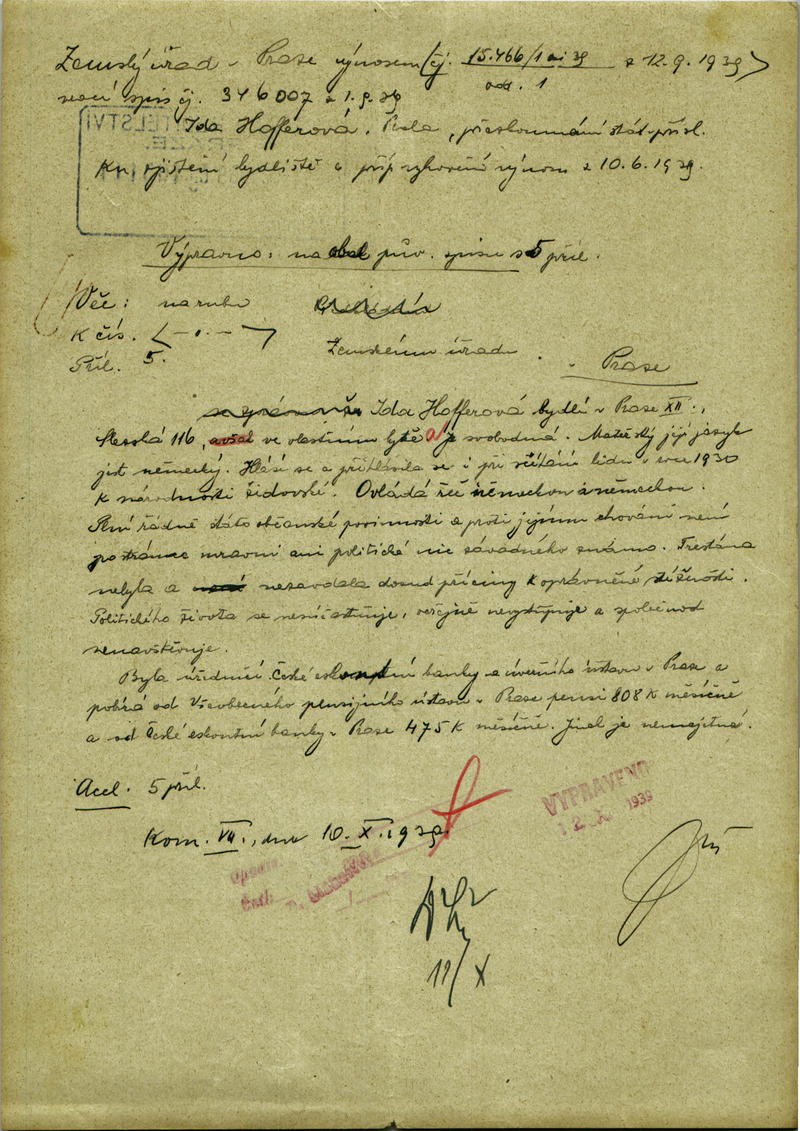 Zemský úřad v Praze výnosem (čj. 15.466/1 ai 39 z 12.9.1939)
odd. 1
vrací spis čj. 346007 z 1.9.39
Ida Hofferová, Praha, přezkoumání stát. přísl.
Ku zjištění bydliště a příp. vyhovění výnosu z 10.6.1939.
Výpravno: na pův. spisu s 5 příl.
Věc: na rubu
K čís.
Zemskému úřadu
Příl. 5.
v Praze
Ida Hofferová bydlí v Praze XII.,
Slezská 116, ve vlastním bytě a je svobodná. Mateřský její jazyk
jest německý. Hlásí se a přihlásila se i při sčítání lidu v roce 1930
k národnosti židovské. Ovládá řeč německou.
Plní řádně státo občanské povinnosti a proti jejímu chování není
po stránce mravní ani politické nic závadného známo. Trestána
nebyla a nezavdala dosud příčiny k oprávněné stížnosti.
Politického života se nesúčastňuje, veřejně nevystupuje a společnost
nenavštěvuje.
Byla úřednicí České eskontní banky a úvěrního ústavu v Praze a
pobírá od Všeobecného pensijního ústavu v Praze pensi 808 K měsíčně
a od České eskontní banky v Praze 475 K měsíčně. Jinak je nemajetná.
Accl. 5 příl.
VYPRAVENO
12. X. 1939
Kom. VII., dne 10. X. 1939.
11/X